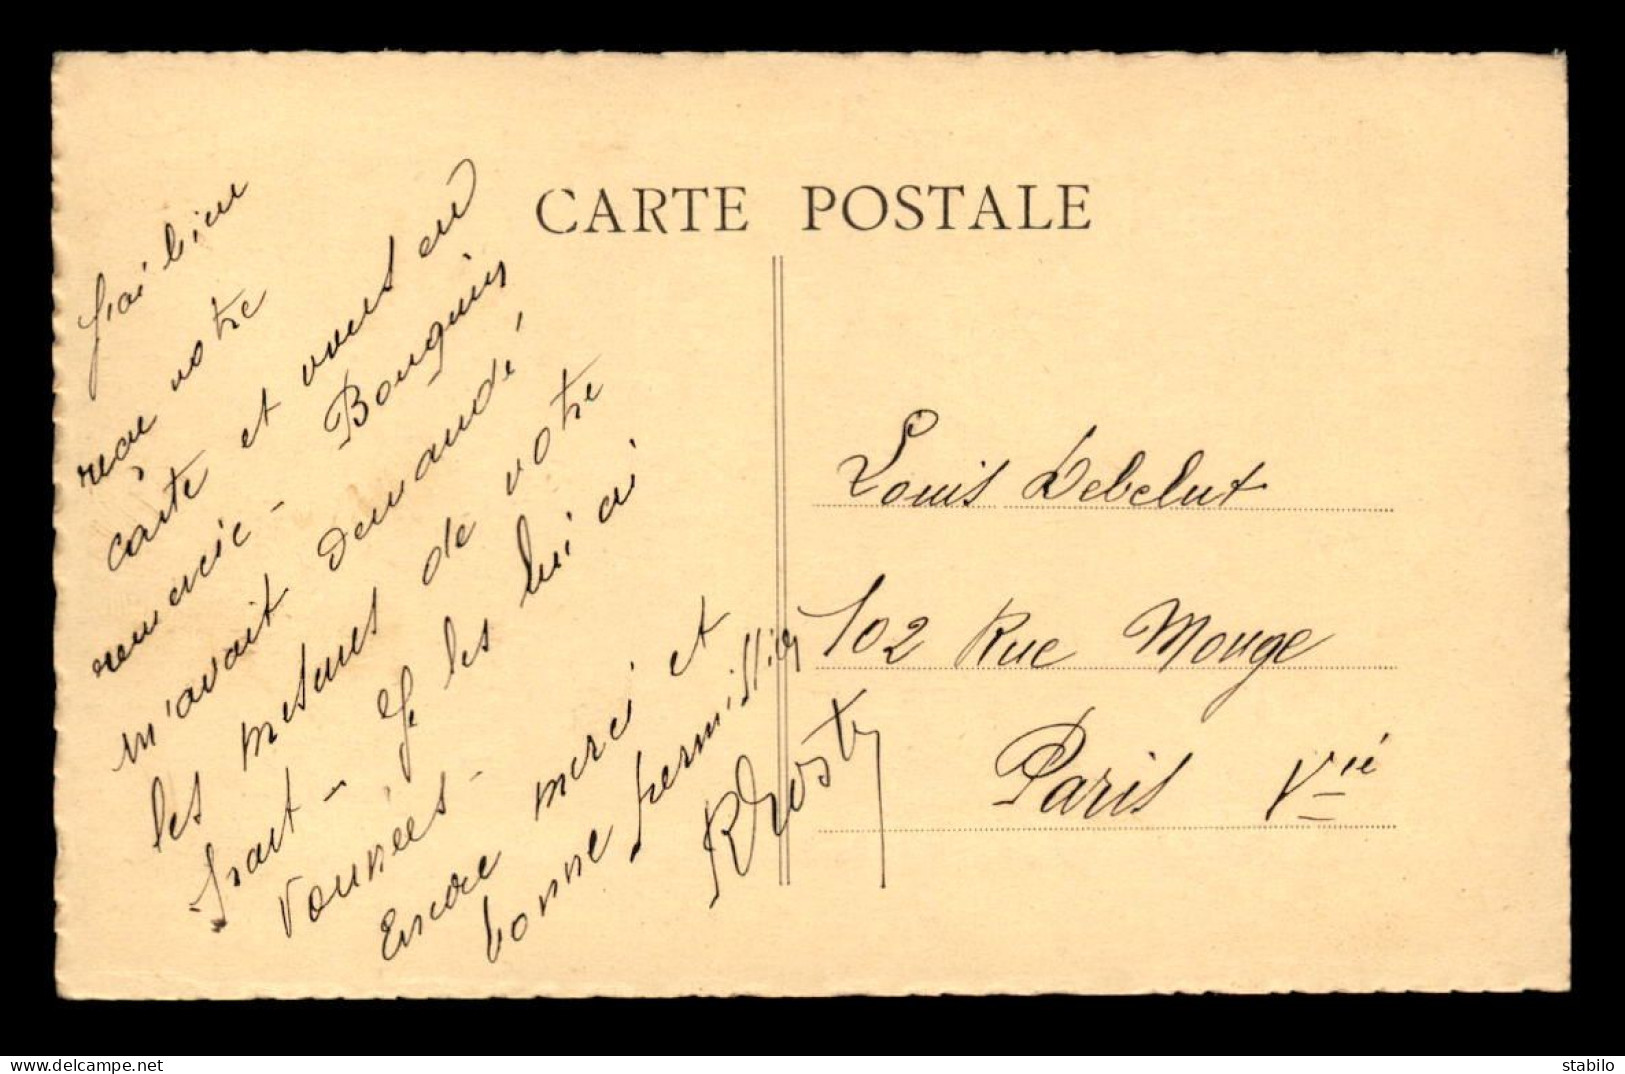 CARTE POSTALE
J'ai bien
reçu votre
carte et vous en
remercie -
Bouquin
m'avait demandé
les mesures de votre
front - Je les lui ai
données -
Encore merci et
bonne permission
Louis Debelut
102 Rue Monge
Paris Vie
delcampe.net
stabilo